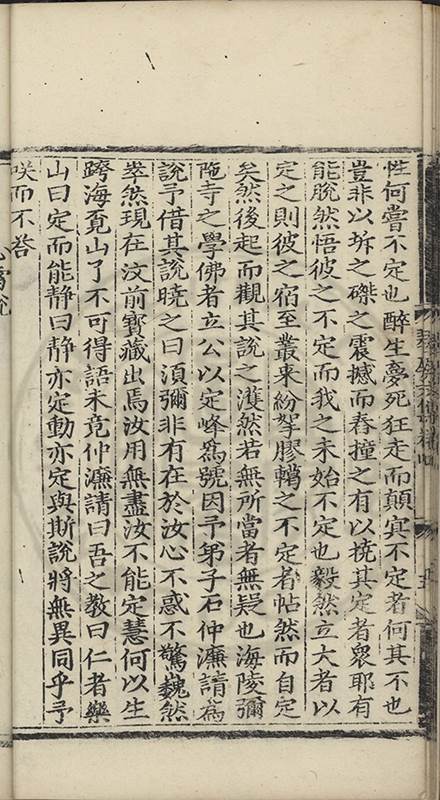 性何嘗不定也醉生夢死狂走而顛寘不定者何其不也
豈非以坼之磔之震撼而舂撞之有以撓其定者衆耶有
能脫然悟彼之不定而我之未始不定也毅然立大者以
定之則彼之宿至叢来紛挐膠轕之不定者帖然而自定
矣然後起而觀其說之濩然若無所當者無疑也海陵彌
陁寺之學佛者立公以定峰為號因予弟子石仲濂請為
說予借其說曉之曰湏彌非有在於汝心不惑不驚巍然
崒然現在汶前寶藏出焉汝用無盡汝不能定慧何以生
跨海覔山了不可得語未竟仲濂請曰吾之教曰仁者樂
山曰定而能静曰静亦定動亦定與斯說將無異同乎予
咲而不荅
心雪說